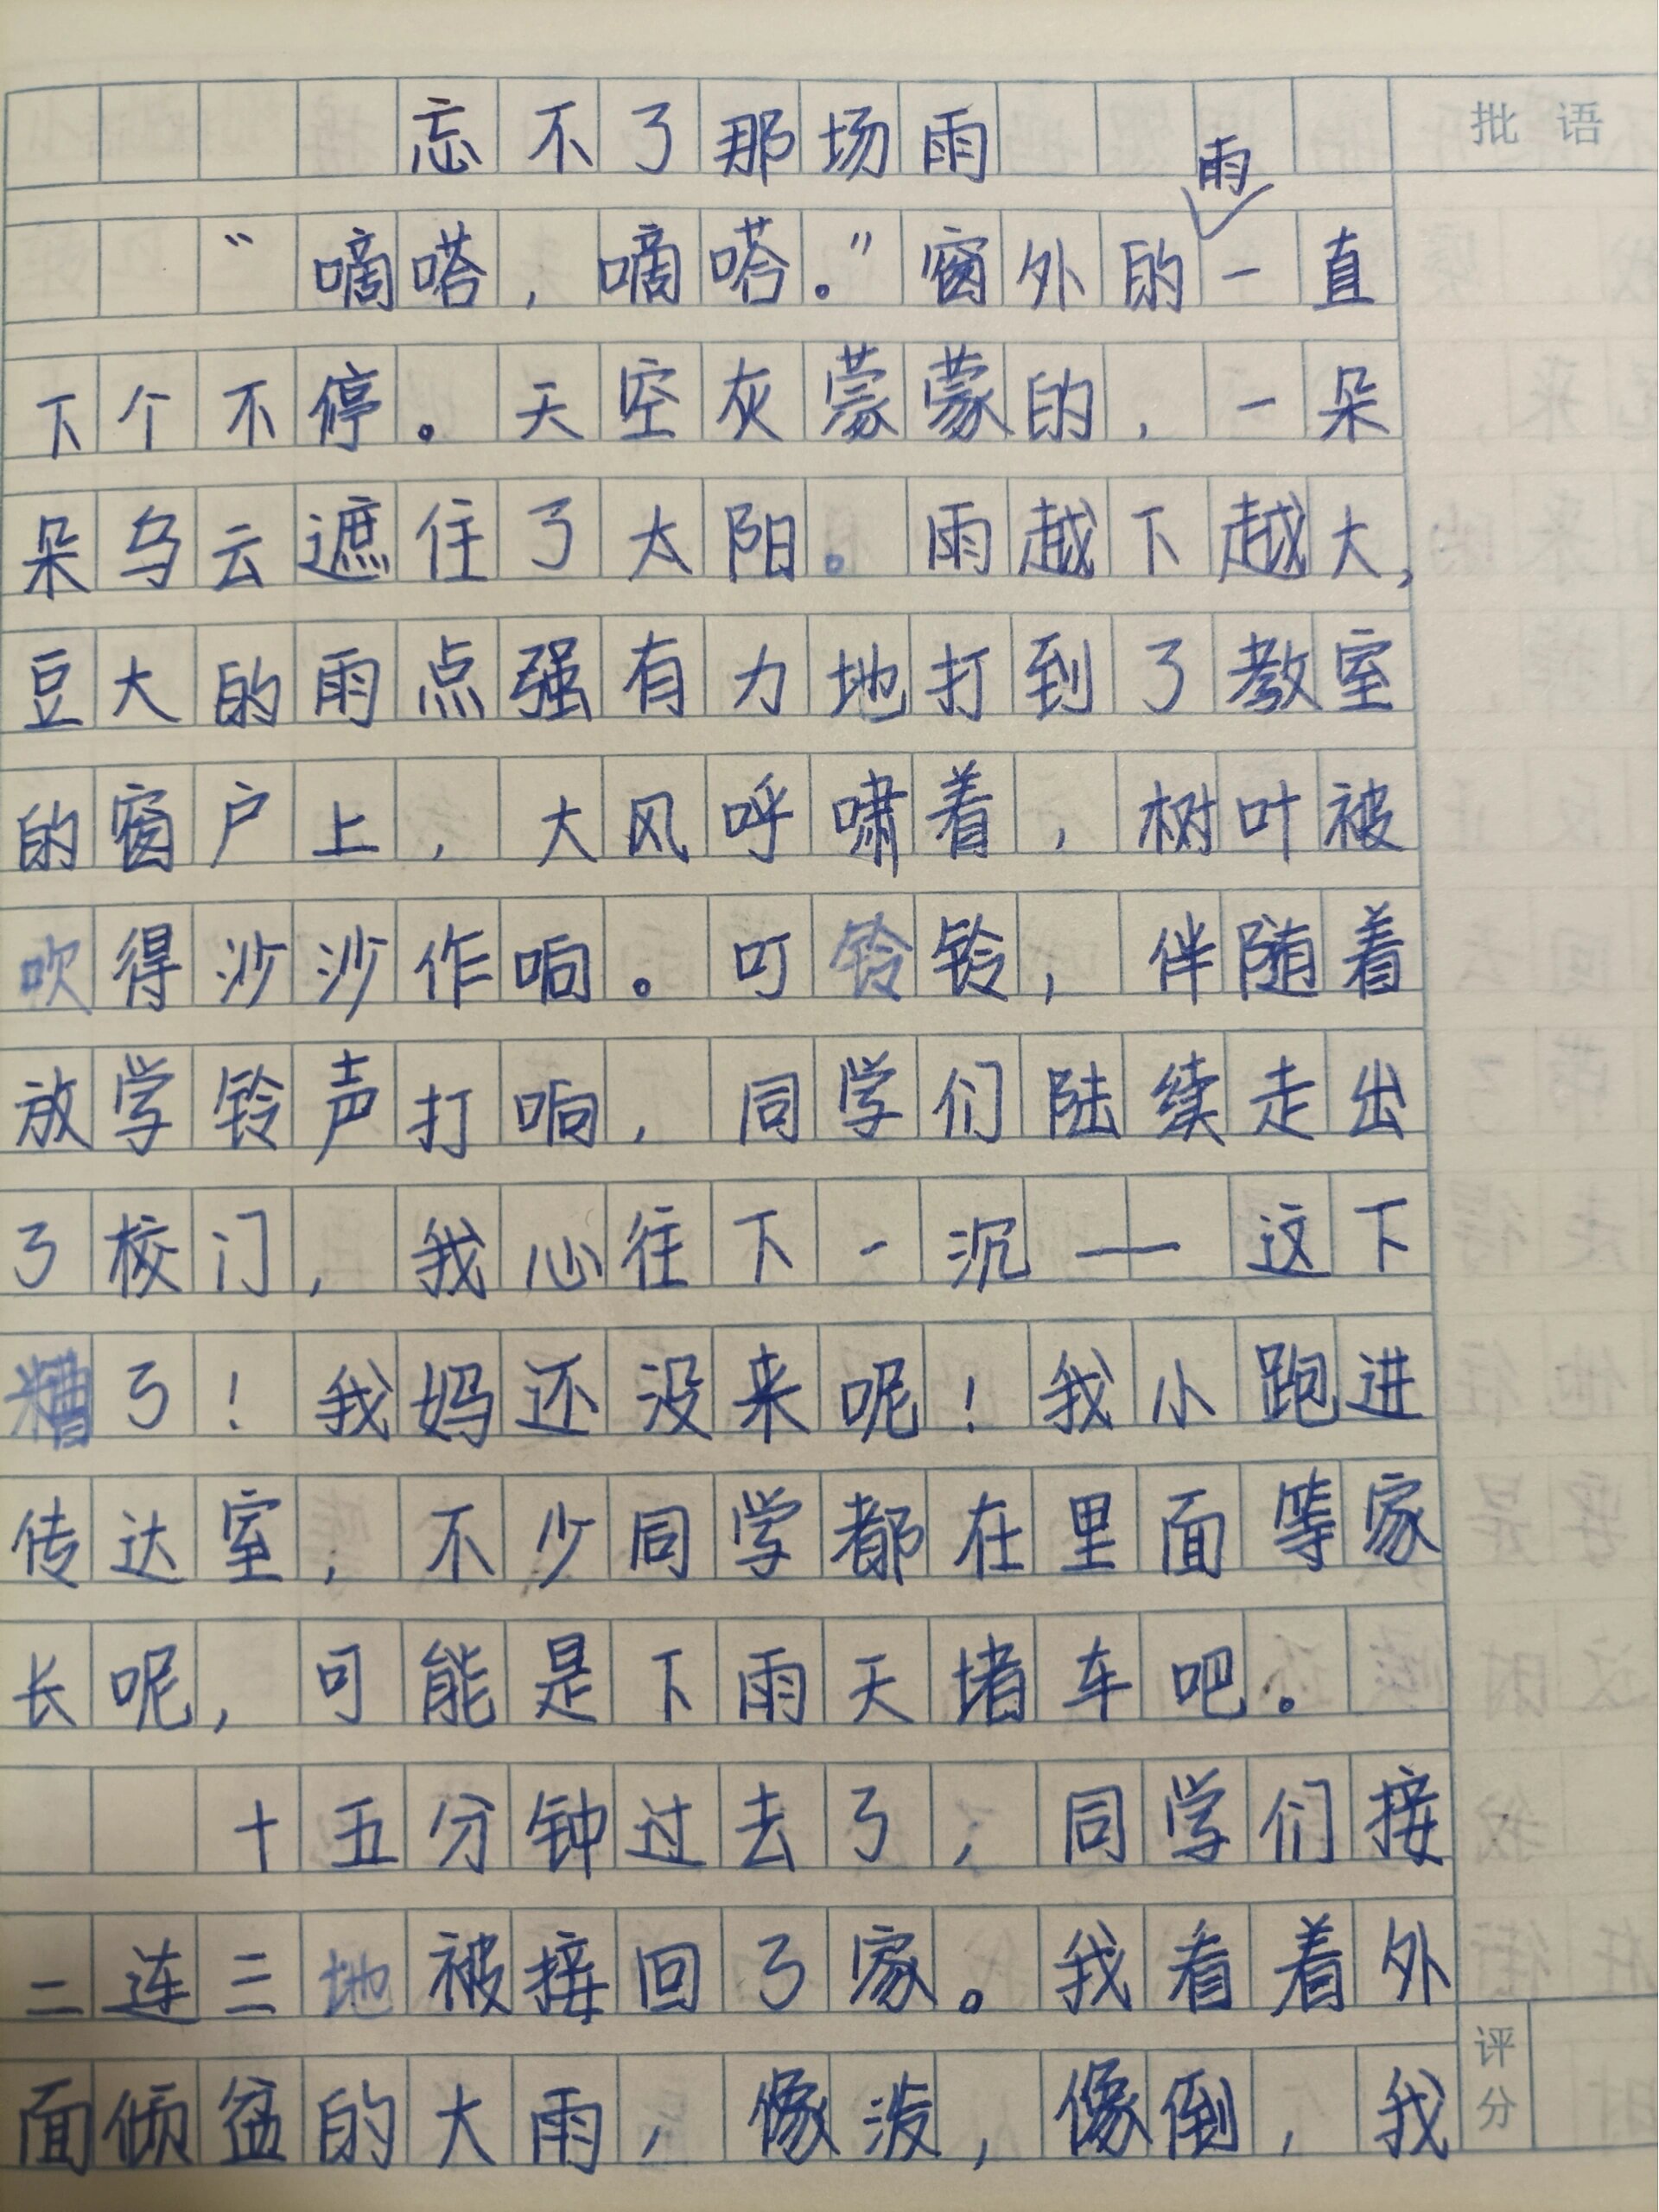 忘不了那场雨
批语
雨
“嘀嗒，嘀嗒。”窗外的一直
下个不停。天空灰蒙蒙的，一朵
朵乌云遮住了太阳。雨越下越大，
豆大的雨点强有力地打到了教室
的窗户上，大风呼啸着，树叶被
吹得沙沙作响。叮铃铃，伴随着
放学铃声打响，同学们陆续走出
了校门，我心往下一沉——这下
糟了！我妈还没来呢！我小跑进
传达室，不少同学都在里面等家
长呢，可能是下雨天堵车吧。
十五分钟过去了，同学们接
二连三地被接回了家。我看着外
面倾盆的大雨，像泼，像倒，我
评分